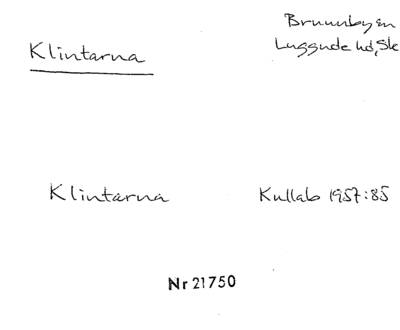 Klintarna
Brunnby sn
Luggude hd, Sk
Klintarna
Kullab 1957:85
Nr 21750